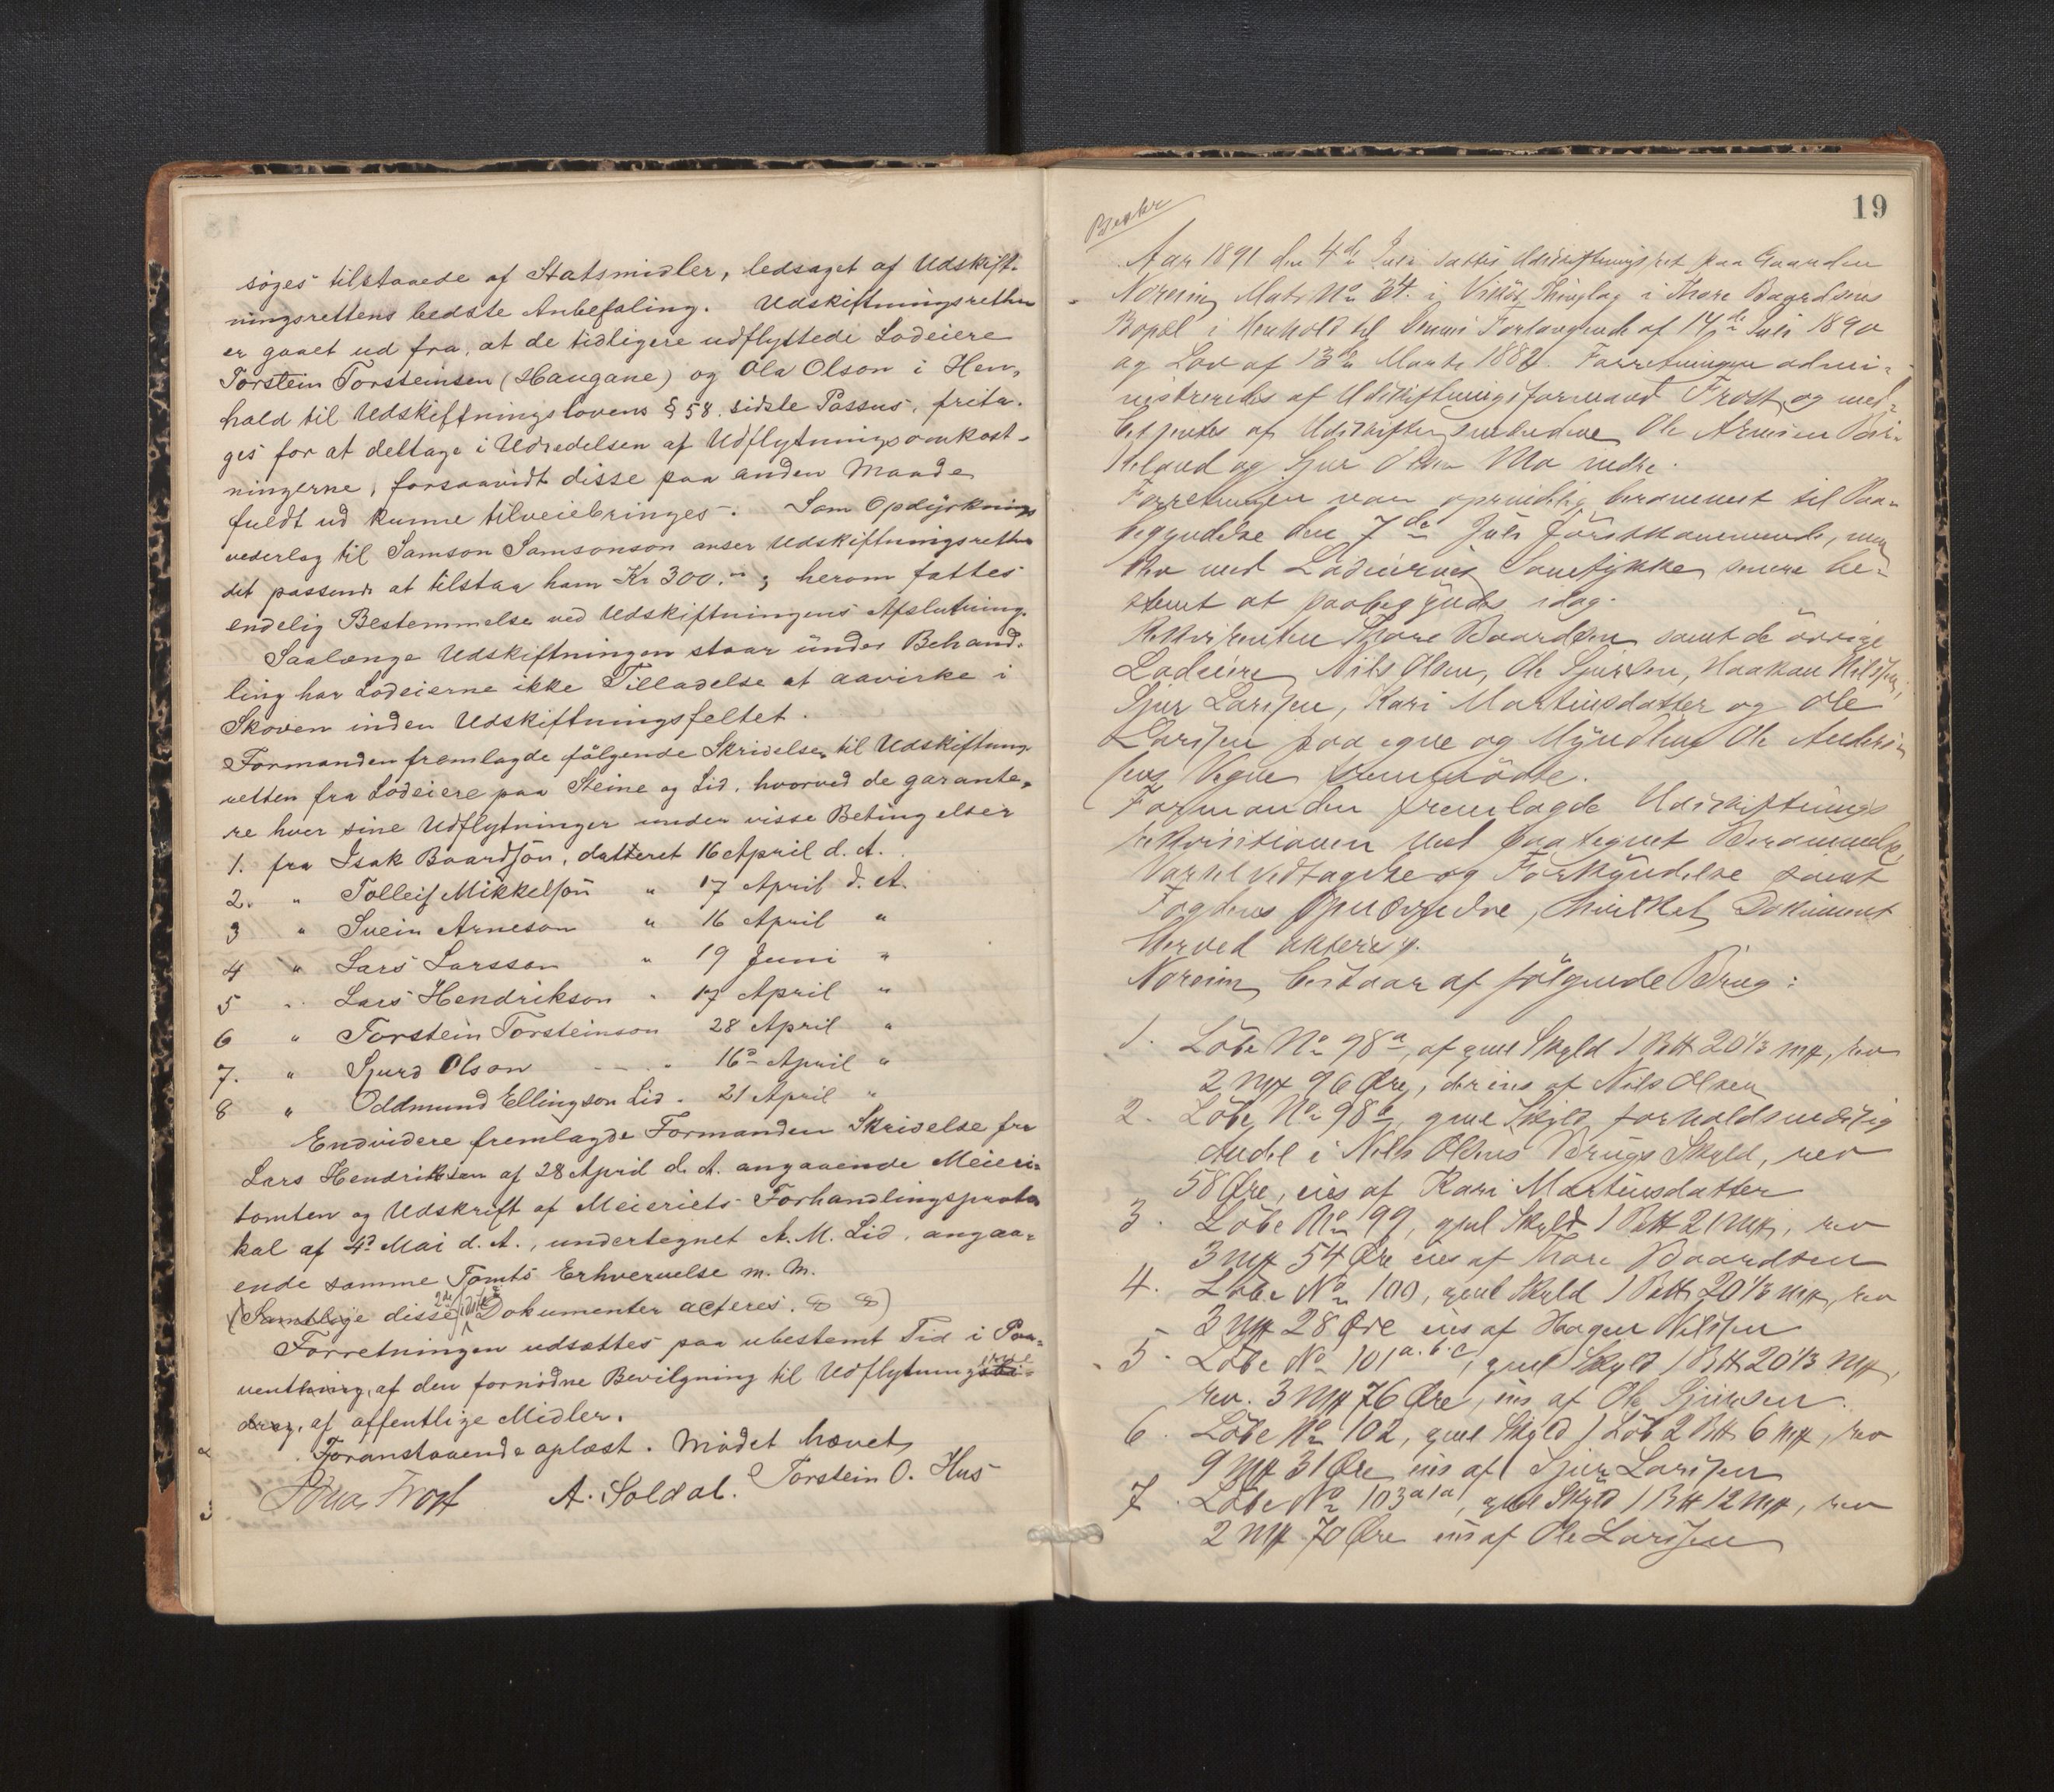 söges tilstaaede af Statsmidler, ledsaget af Udskift-
ningsrettens bedste Anbefaling. Udskiftningsretten
er gaaet ud fra, at de tidligere udflyttede Lodeiere
Torstein Torsteinsen (Haugane) og Ola Olson i Hen-
hold til Udskiftningslovens § 58. sidste Passus, frita-
ges for at deltage i Udredelsen af Udflytningsomkost-
ningerne, forsaavidt disse paa anden Maade
fuldt ud kunne tilveiebringes. Som Opdyrknings
vederlag til Samson Samsonson anser Udskiftningsretten
det passende at tilstaa ham Kr 300.-; herom fattes
endelig Bestemmelse ved Udskiftningens Afslutning.
Saalænge Udskiftningen staar under Behand-
ling har Lodeierne ikke Tilladelse at aavirke i
Skoven inden Udskiftningsfeltet.
Formanden fremlagde følgende Skrivelser til Udskiftnings
retten fra Lodeiere paa Steine og Lid, hvorved de garante-
re hver sine Udflytninger under visse Betingelser
1. fra Isak Baardsön, datteret 16 April d. A.
2. " Tolleif Mikkelsön " 17 April d. A.
3 " Svein Arneson " 16 April "
4 " Lars Larsson " 19 Juni "
5 " Lars Hendrikson " 17 April "
6 " Torstein Torsteinson 28 April "
7. " Sjurd Olson " 16de April "
8 " Oddmund Ellingson Lid. 21 April "
Endvidere fremlagde Formanden Skrivelse fra
Lars Hendriksen af 28 April d. A. angaaende Meieri-
tomten og Udskrift af Meieriets Forhandlingsproto
kol af 4de Mai d. A., undertegnet A. M. Lid, angaa-
ende samme Tomts Erhvervelse m. M.
(Samtlige disse 2de sidste Dokumenter acteres.)
Forretningen udsættes paa ubestemt Tid i Paa-
venthing, af den fornødne Bevilgning til Udflytnings
drag, af offentlige Midler.
Foranstaaende oplæst. Mødet hævet
Frost A. Soldal. Torstein O. Hus
19
Aar 1891 den 4de Juli sattes Udskiftningsret paa Gaarden
Noreim Matr No 34. i Vikör Thinglag i Thore Baardsens
Bopæl i Henhold til Dennes Forlangende af 14de Juli 1890
og Lov af 13de Marts 1882. Forretningen admi-
nistreredes af Udskiftningsformand Frost og med-
betjentes af Udskiftningsmændene Ole Arnesen
og Sjur Olsen Mo nedre.
Forretningen var oprindelig berammet til Paa-
begyndelse den 7de Juli förstkommende, men
blev med Lodeiernes Samtykke senere be-
stemt at paabegyndes idag.
Rekvirenten Thore Baardsen samt de övrige
Lodeiere Nils Olsen, Ole Sjursen, Haakon Nilssen,
Sjur Larssen, Kari Martinsdatter og Ole
Larssen paa egne og Myndling Ole Anders-
sens Vegne fremmödte.
Formanden fremlagde Udskiftnings
rekvisitionen med paategnet Berammelse,
Varselvedtagelse og Forkyndelse samt
Fogdens Opnævnelse, hvilket Dokument
herved akteres.
Noreim bestaar af fölgende Brug:
1. Löbe No 98a, af gml Skyld 1 B℔ 20 1/3 mrk, rev
2 mrk 96 Øre, der eies af Nils Olsen
2. Löbe No 98b, gml Skyld forholdsmæssig
Andel i Nils Olsens Brugs Skyld, rev
58 Øre, eies af Kari Martinsdatter
3. Löbe No 99, gml Skyld 1 B℔ 21 mrk, rev
3 mrk 54 Øre eies af Thore Baardsen
4. Löbe No 100, gml Skyld 1 B℔ 20 1/3 mrk, rev
3 mrk 28 Øre eies af Haagen Nilssen
5. Löbe No 101 a.b.c, gml Skyld 1 B℔ 20 1/3 mrk,
rev. 3 mrk 76 Øre, eies af Ole Sjursen.
6. Löbe No 102, gml Skyld 1 Löb 2 B℔ 6 mrk, rev
9 mrk 31 Øre eies af Sjur Larssen
7. Löbe No 103 a1a, gml Skyld 1 B℔ 12 mrk, rev
2 mrk 70 Øre eies af Ole Larssen